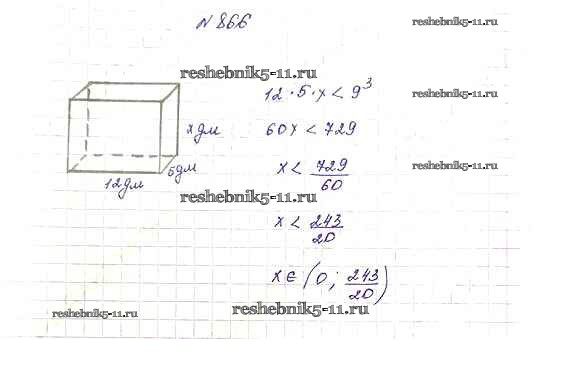 № 866
reshebnik5-11.ru
reshebnik5-11.ru
12 · 5 · x < 9³
reshebnik5-11.ru
x дм
60x < 729
5 дм
x < 729/60
reshebnik5-11.ru
12 дм
reshebnik5-11.ru
x < 243/20
x ∈ (0; 243/20)
reshebnik5-11.ru
reshebnik5-11.ru